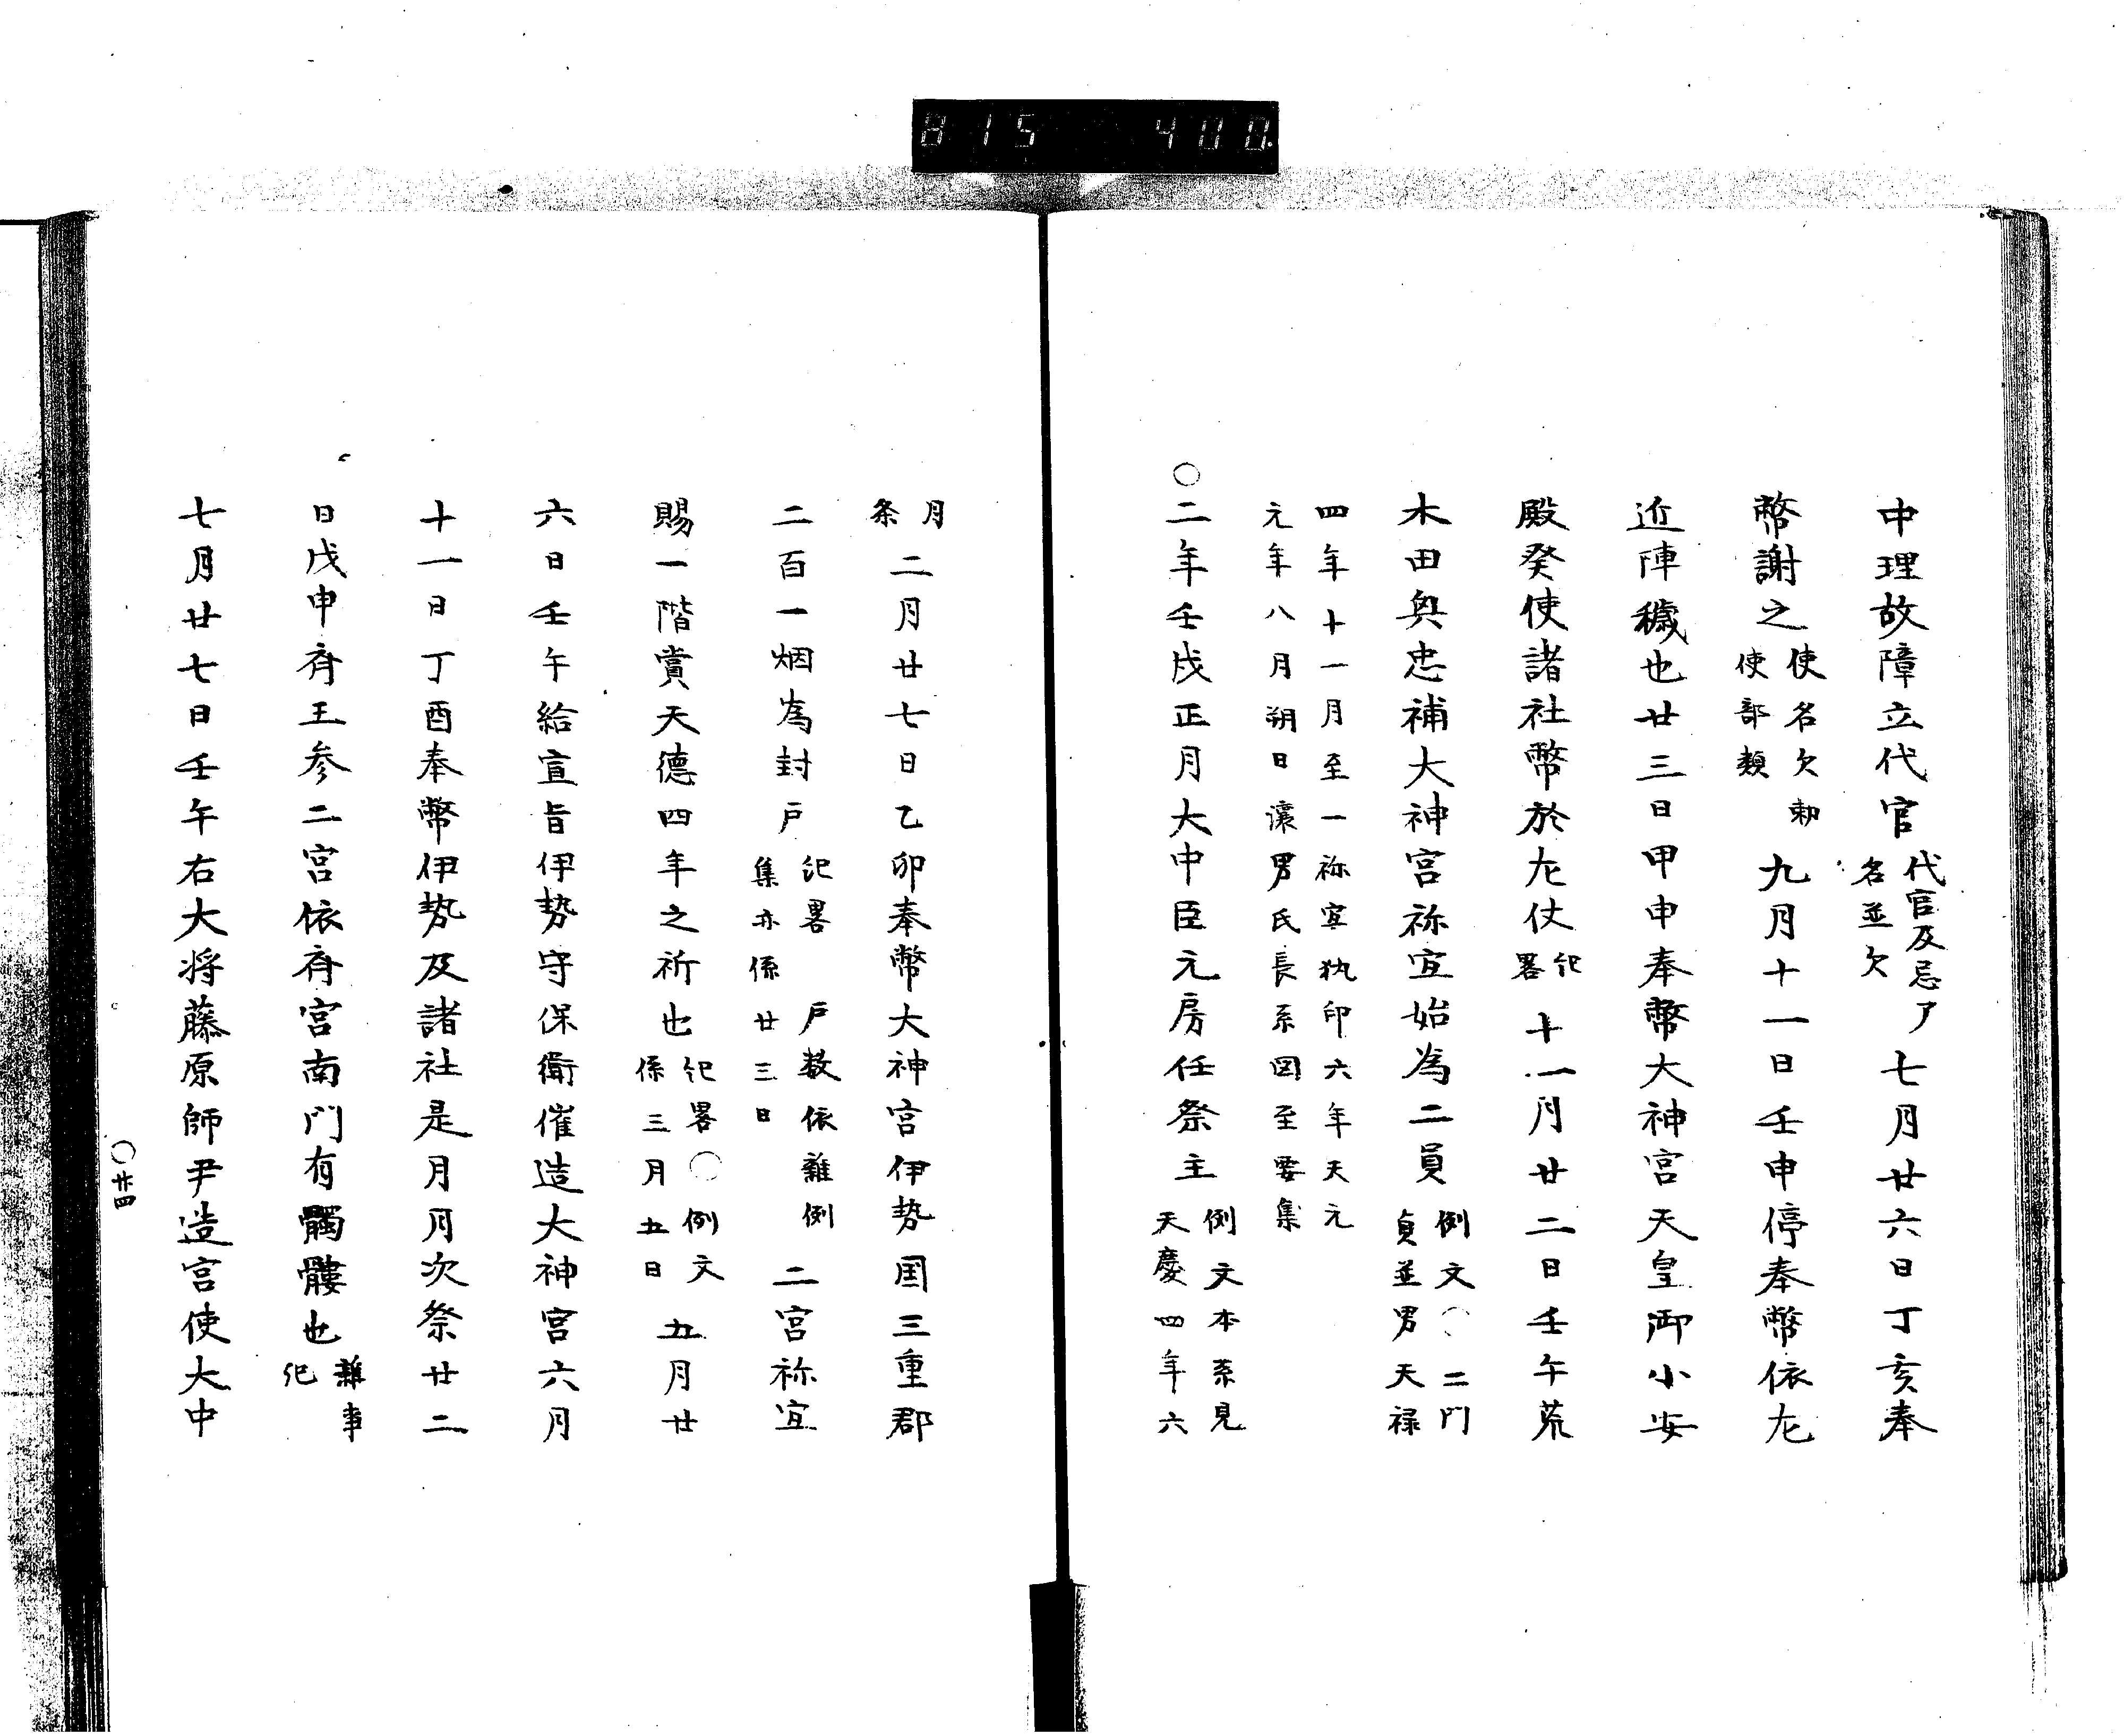 815 400
中理故障立代官代官及忌了名並欠七月廿六日丁亥奉
幣謝之使名欠勅使部類九月十一日壬申停奉幣依左
近陣穢也廿三日甲申奉幣大神宮天皇御小安
殿発使諸社幣於左仗紀畧十一月廿二日壬午荒
木田興忠補大神宮祢宜始為二員例文〇二門貞並男天禄
四年十一月至一祢宜執印六年天元
元年八月朔日讓男氏長系図至要集
〇二年壬戌正月大中臣元房任祭主例文本系見天慶四年六
月条二月廿七日乙卯奉幣大神宮伊勢国三重郡
二百一烟為封戸紀畧 戸数依雜例集亦係廿三日二宮祢宜
賜一階賞天德四年之祈也紀畧〇例文係三月五日五月廿
六日壬午給宣旨伊勢守保衡催造大神宮六月
十一日丁酉奉幣伊勢及諸社是月月次祭廿二
日戊申斉王参二宮依斉宮南門有髑髏也雜事紀
七月廿七日壬午右大将藤原師尹造宮使大中
〇廿四